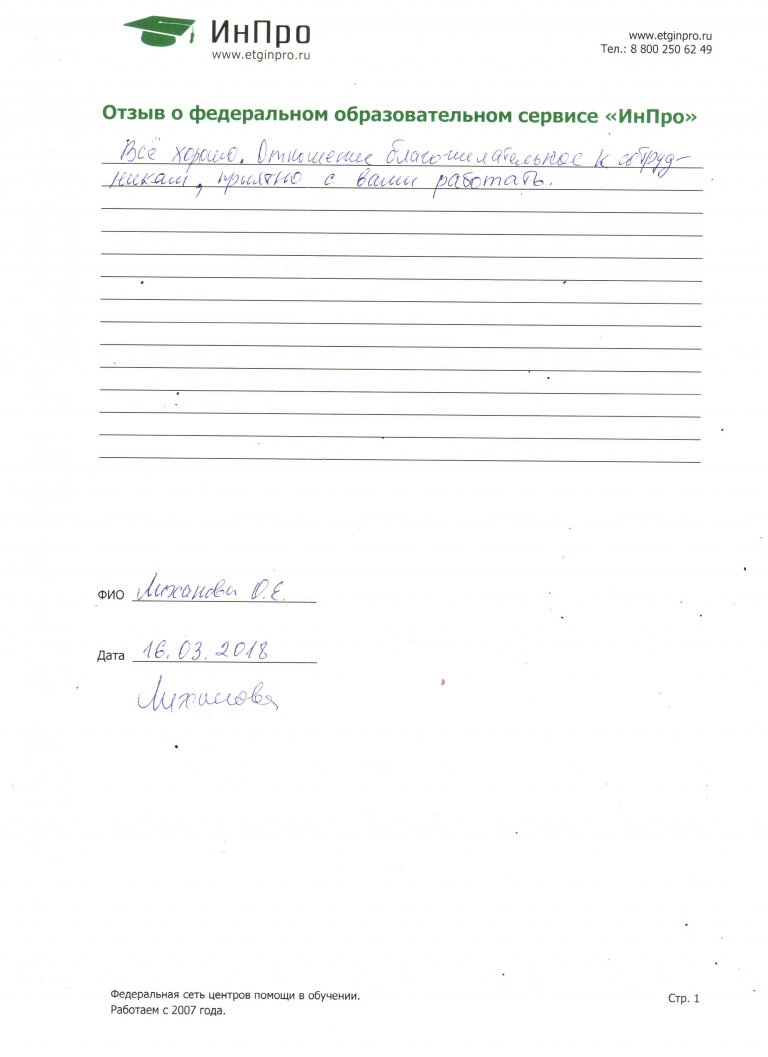 ИнПро
www.etginpro.ru
www.etginpro.ru
Тел.: 8 800 250 62 49
Отзыв о федеральном образовательном сервисе «ИнПро»
Всё хорошо. Отношение благожелательное к сотруд-
никам, приятно с вами работать.
ФИО Лиханова О.Е.
Дата 16.03.2018
Лиханова
Федеральная сеть центров помощи в обучении.
Работаем с 2007 года.
Стр. 1